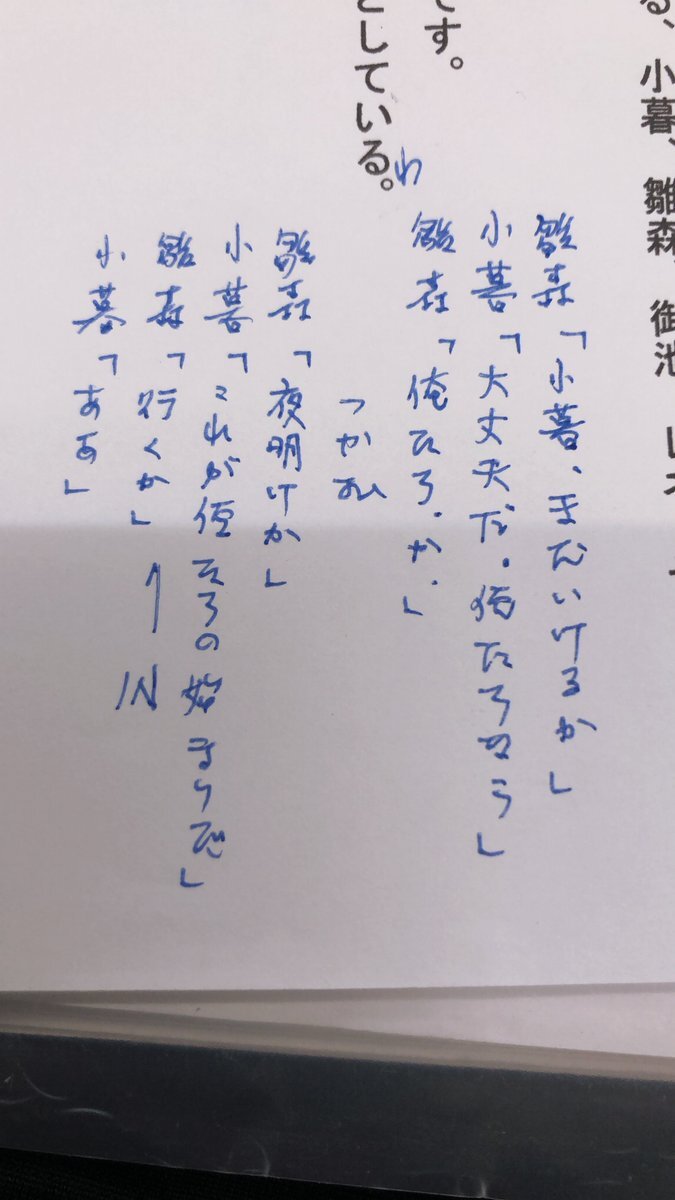 る、小暮、雛森、御池
です。
としている。
雛森「小暮、まだいけるか」
小暮「大丈夫だ。俺たちなら」
雛森「俺たち、か。」
雛森「夜明けか」
小暮「これが俺たちの始まりだ」
雛森「行くか」 ↑ IN
小暮「ああ」